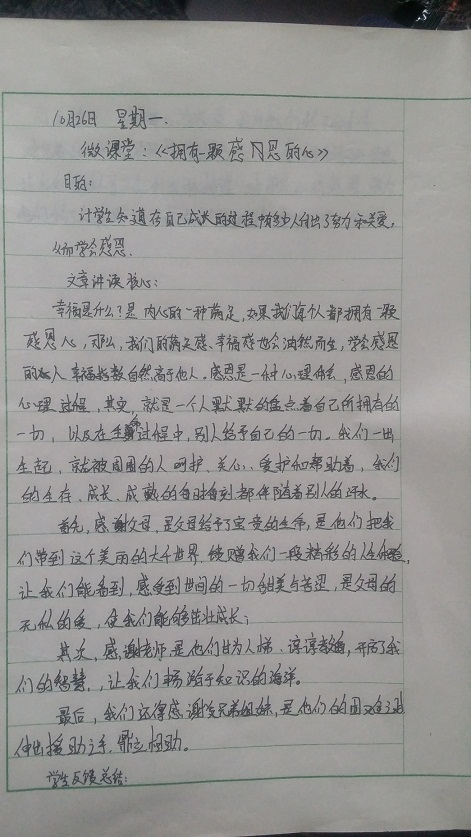 10月26日 星期一.
微课堂:《拥有一颗感恩的心》
目的:
让学生知道在自己成长的过程中有多少人付出了努力和关爱,
从而学会感恩.
文章讲读核心:
幸福是什么?是内心的一种满足,如果我们每个人都拥有一颗
感恩心,那么,我们的满足感、幸福感也会油然而生,学会感恩
的人幸福指数自然高于他人。感恩是一种心理体会,感恩的
心理过程,其实,就是一个人默默的盘点着自己所拥有的
一切,以及在过程中,别人给予自己的一切。我们一出
生起,就被周围的人呵护、关心、爱护和帮助着,我们
的生存、成长、成熟的每时每刻都伴随着别人的汗水。
首先,感谢父母,是父母给予了宝贵的生命,是他们把我
们带到这个美丽的大千世界,馈赠我们一段精彩的人生,
让我们能看到,感受到世间的一切甜美与苦涩,是父母的
无私的爱,使我们能够茁壮成长;
其次,感谢老师,是他们甘为人梯、谆谆教诲,开启了我
们的智慧,让我们畅游于知识的海洋。
最后,我们还得感谢兄弟姐妹,是他们的
伸出援助之手,鼎立相助。
学生反馈总结: